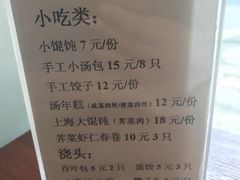 小吃类：
小馄饨 7 元/份
手工小汤包 15元/8 只
手工饺子 12 元/份
汤年糕（咸菜肉丝/荠菜肉丝）12 元/份
上海大馄饨（荠菜肉）18 元/份
荠菜虾仁春卷 10 元 3 只
浇头：
百叶包 5 元 2 只 蛋饺 5 元 3 只